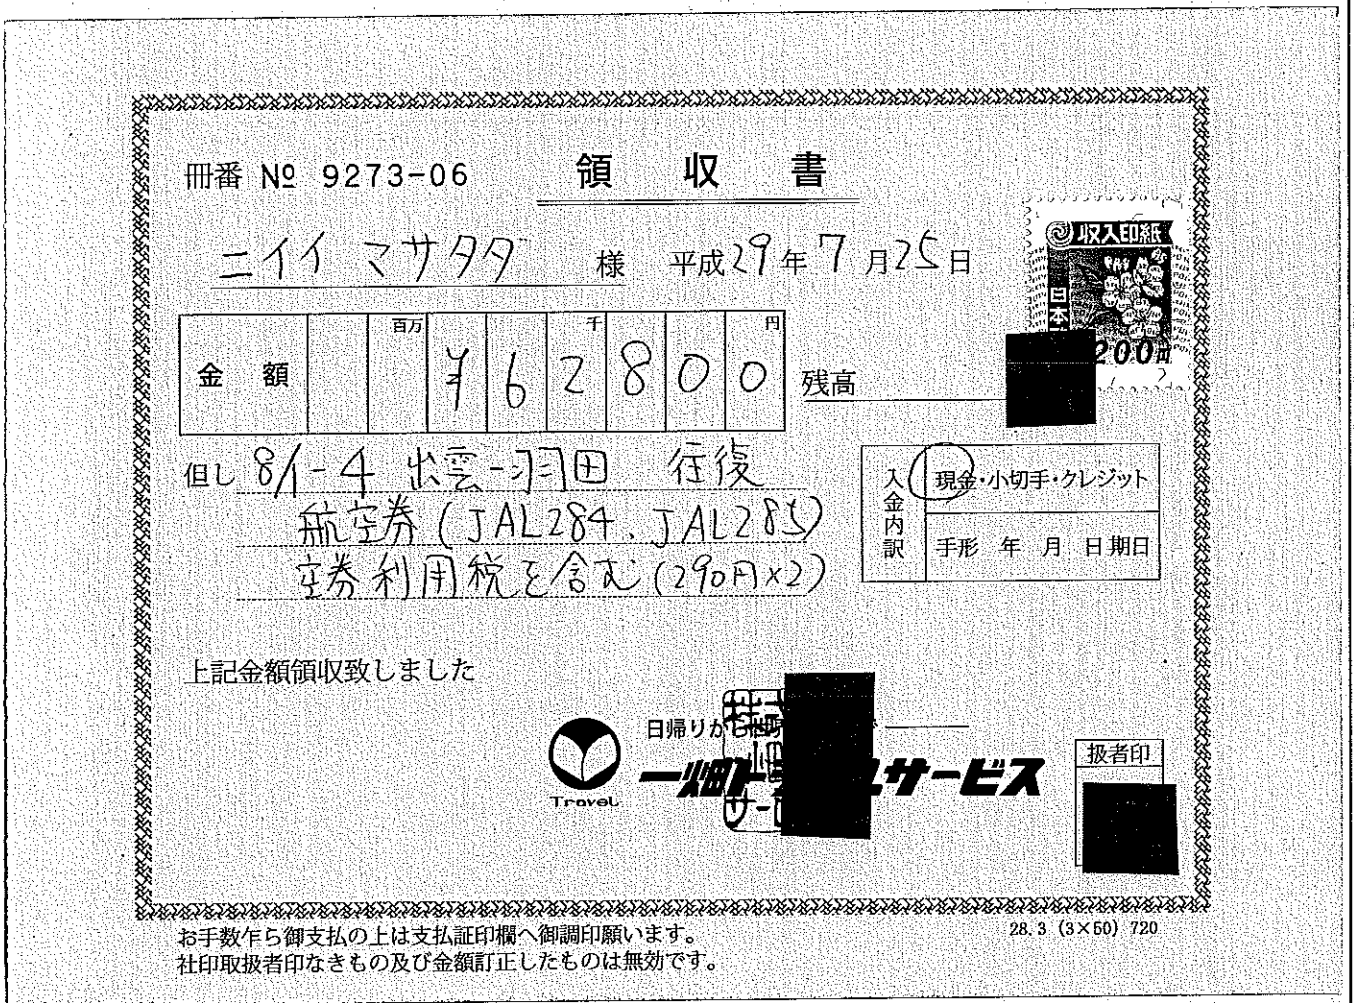 冊番 № 9273-06 領収書
ニイイ マサタダ 様 平成29年7月25日
収入印紙
日本
200円
百万 千 円
金額 ¥62800
残高
但し 8/1-4 出雲-羽田 往復
航空券(JAL284、JAL285)
空券利用税を含む(290円×2)
入金内訳
現金・小切手・クレジット
手形 年 月 日期日
上記金額領収致しました
日帰りから
Travel
一畑ト サービス
扱者印
お手数乍ら御支払の上は支払証印欄へ御調印願います。
社印取扱者印なきもの及び金額訂正したものは無効です。
28.3 (3×50) 720